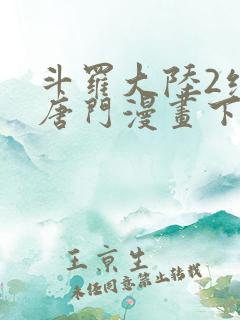 斗羅大陸2
唐門漫畫下
王京生
未经同意禁止转载